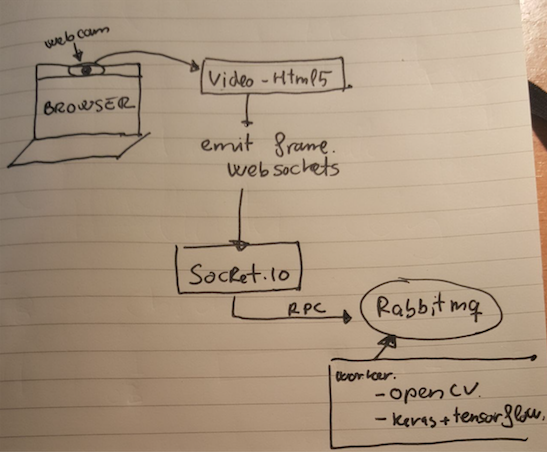 webcam
BROWSER
Video-Html5
emit frame.
websockets
Socket.io
RPC
Rabbitmq
worker.
- open CV.
- keras+tensorflow.